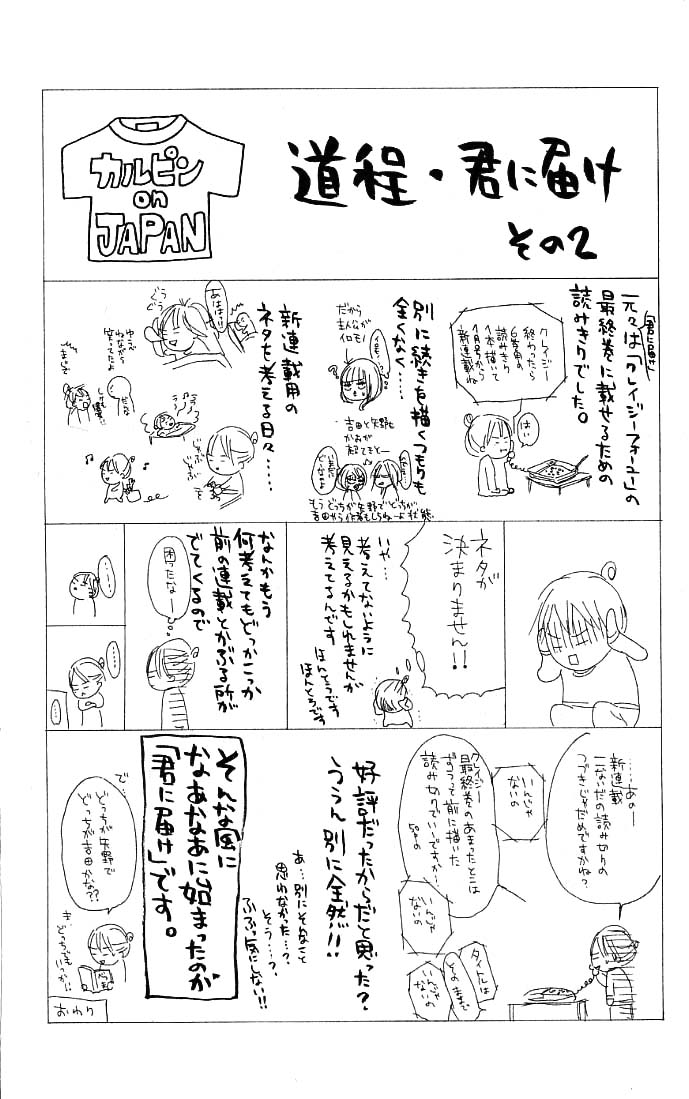 カルピン
on
JAPAN
道程・君に届け
その2
元々(君に届け)は「クレイジーフォーユー」の
最終巻に載せるための
読みきりでした。
クレイジー
終わったら
読みきり
1本描いて
新連載ね
はい
別に続きを描くつもりも
全くなく…
だから
主人公が
イロモノ
吉田と矢野も
かおが
超てきとー
もうどっちが矢野でどっちが
吉田かも作者もしらねーよ状態
新連載用の
ネタを考える日々……
あははは!!
ネタが
決まりません!!
いや…
考えてないように
見えるかもしれませんが
考えてるんです
ほんとうです
ほんとうです
なんかもう
何考えてもどっかこっか
前の連載とかぶる所が
でてくるので
困ったなー
……
……
……あのー
新連載
こないだの読み切りの
つづきじゃだめですかね?
いんじゃ
ないの
クレイジー
最終巻のあまったとこは
ずうっと前に描いた
読み切りでいいですか…
いんじゃ
ないの
タイトルは
そのままで
いんじゃ
ないの
好評だったからだと思った?
ううん別に全然!!
あ…別にそんなこと
思わなかった…?
そう…?
ふふっ気にしない!!
そんな風に
なあなあに始まったのが
「君に届け」です。
で…
どっちが矢野で
どっちが吉田かな??
き…どっちでも
いっか…
おわり